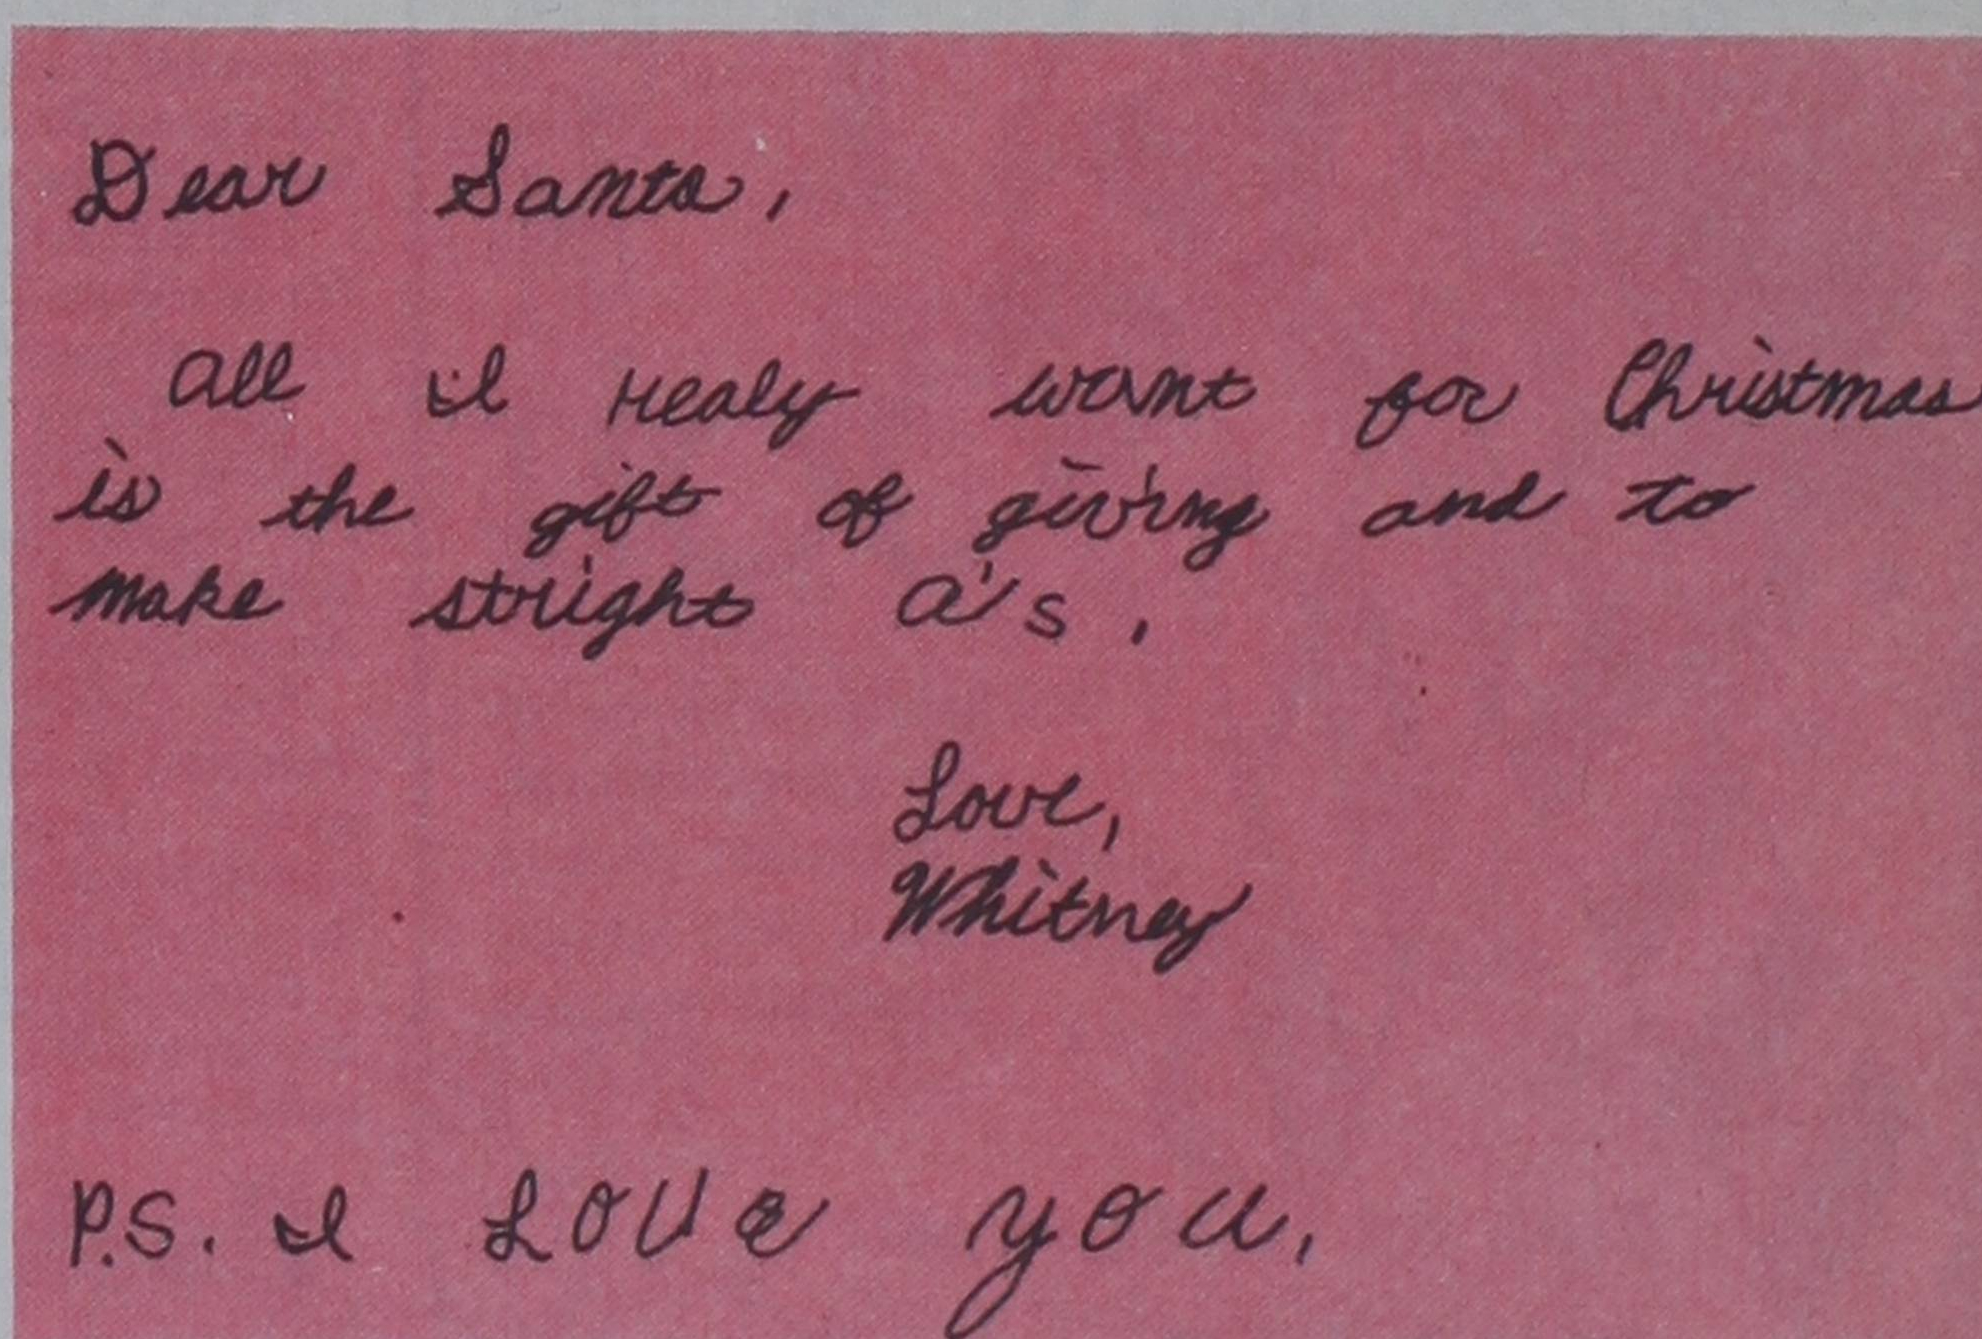 Dear Santa,
All I realy want for Christmas
is the gift of giving and to
make stright A's.
Love,
Whitney
P.S. I Love you.